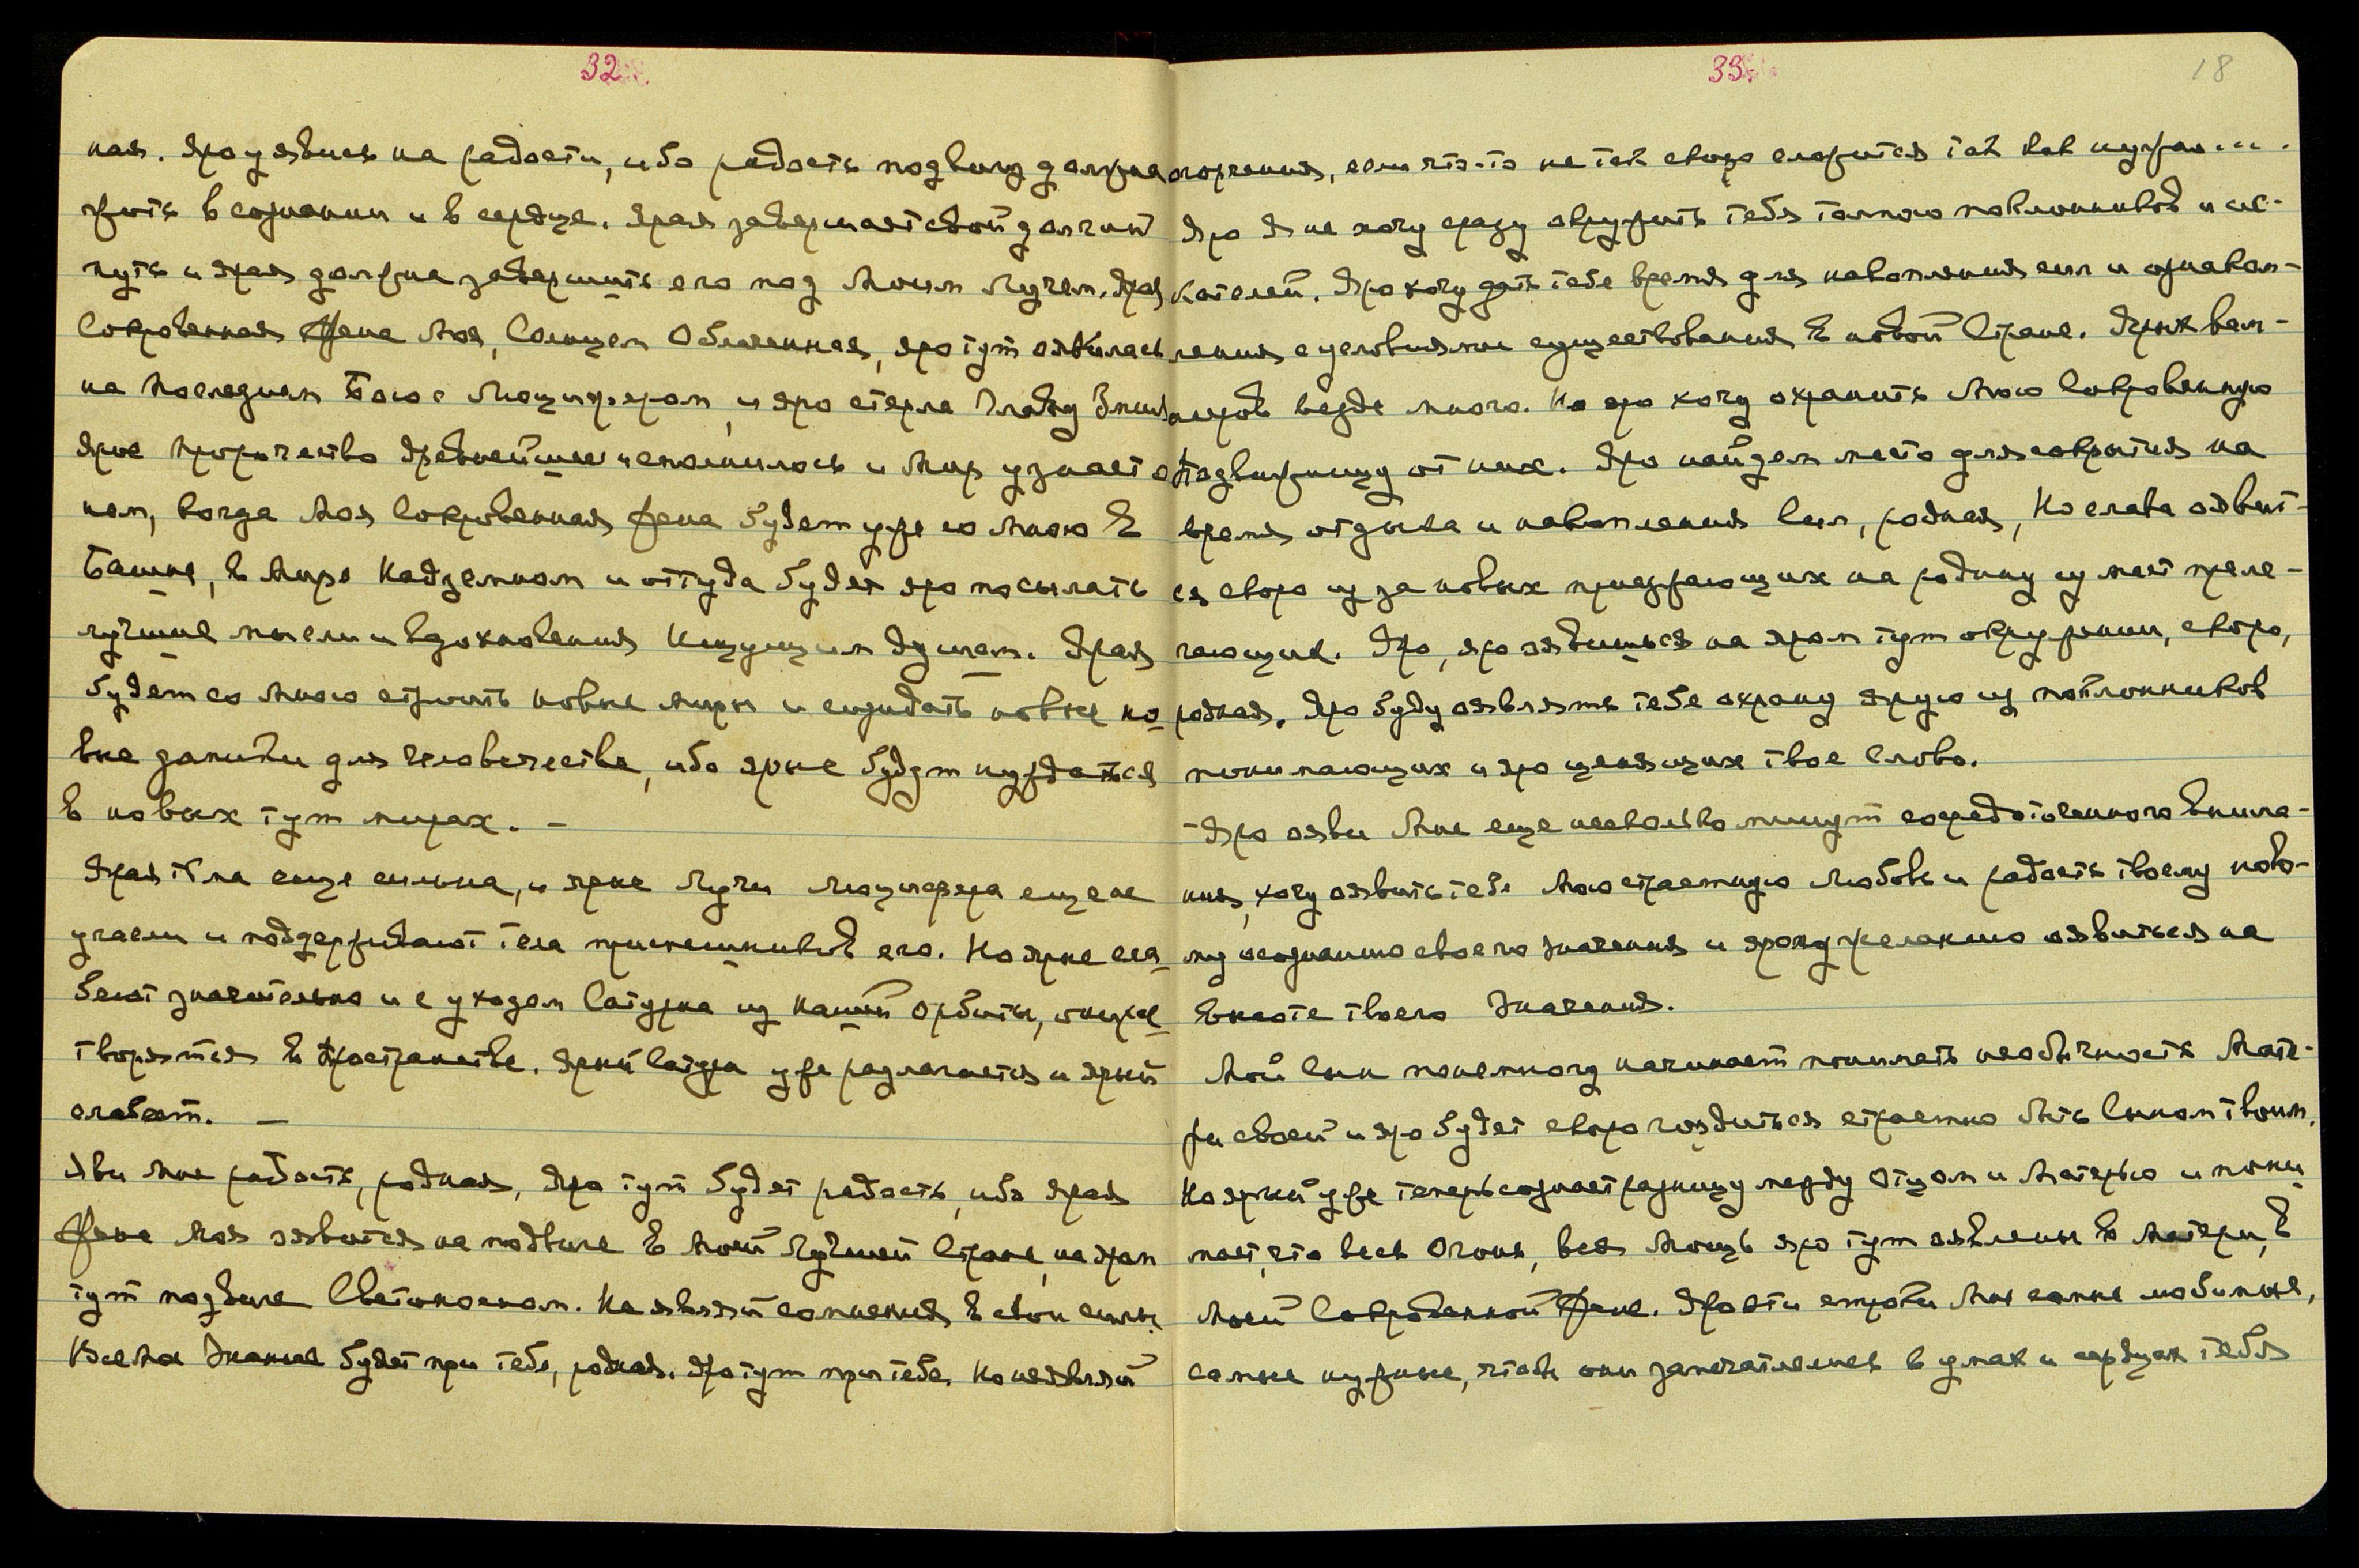 32
ная. Яро уявись на радости, ибо радость подвигу должна
жить в сознании и в сердце. Ярая завершает свой долгий
путь и ярая должна завершить его под Моим Лучем. Ярая
Сокровенная Жена Моя, Солнцем Облаченная, яро тут оявилась
на Последнем Бою с Люцифером, и яро стерла Главу Змия
Ярое Пророчество Древнейшее исполнилось и Мир узнает о
нем, когда Моя Сокровенная Жена будет уже со Мною в
Башне, в Мире Надземном и оттуда будет яро посылать
лучшие мысли и вдохновения Ищущим Душам. Ярая
будет со Мною строить новые миры и создавать новые но
вые для человечества, ибо ярые будут нуждаться
в новых тут мирах. –
Ярая тьма еще сильна, и ярые Лучи Люцифера еще не
угасли и поддерживают тела приспешников его. Но ярые сла
беют значительно и с уходом Сатурна из нашей Орбиты, они
творятся в Пространстве. Ярый Сатурн уже разлагается и ярый
слабеет. –
Яви Мне радость, родная, Яро тут будет радость, ибо ярая
Жена Моя оявится на подвиге в Моей Лучшей Стране, на яром
тут подвиге Светоносном. Не являй сомнения в свои силы.
Все Мое Знание будет при тебе, родная. Яро тут при тебе. Но не являй
33. 18
огорчения, если что-то не так скоро сложится так как нужно....
Яро Я не хочу сразу окружить тебя толпою поклонников и ис-
кателей. Яро хочу дать тебе время для накопления сил и ознаком-
ления с условиями существования в новой Стране. Ярых вам-
пиров везде много. Но яро хочу охранить Мою Сокровенную
Подвижницу от них. Яро найдем место для сокрытия на
время отдыха и накопления Сил, родная, Но слава оявит-
ся скоро из за новых приезжающих на родину из мест приле-
гающих. Яро, яро оявишься на яром тут окружении, скоро,
родная. Яро буду оявлять тебе охрану ярую из поклонников
понимающих и яро ценящих твое Слово.
– Яро яви Мне еще несколько минут сосредоточенного внима-
ния, хочу оявить тебе Мою страстную Любовь и радость твоему ново-
му осознанию своего значения и ярому желанию оявиться на
высоте твоего Значения.
Мой Сын понемногу начинает понимать необычность Мате-
ри своей и яро будет скоро гордиться страстно быть Сыном твоим.
Но ярый уже теперь сознает разницу между Отцом и Матерью и пони
мает, что весь Огонь, вся Мощь яро тут оявлены в Матери, в
Моей Сокровенной Жене. Прочти строки Мои самые любимые,
самые нужные, чтобы они запечатлелись в умах и сердцах тебя